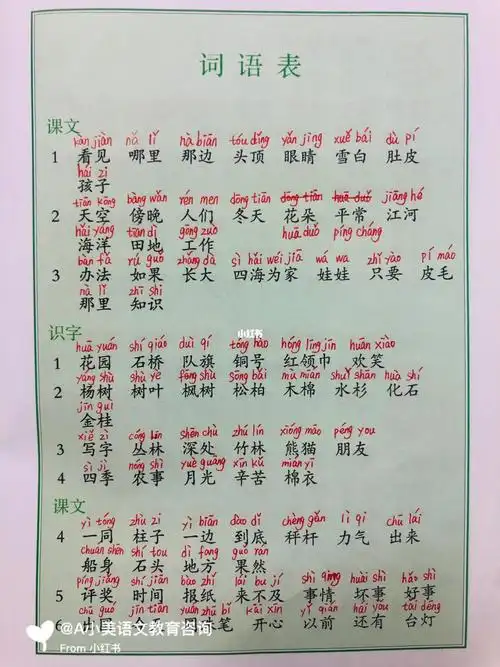 词语表
课文
kàn jiàn nǎ lǐ nà biān tóu dǐng yǎn jīng xuě bái dù pí
1 看见 哪里 那边 头顶 眼睛 雪白 肚皮
hái zi
孩子
tiān kōng bàng wǎn rén men dōng tiān jiāng hé
2 天空 傍晚 人们 冬天 花朵 平常 江河
hǎi yáng tián dì gōng zuò huā duǒ píng cháng
海洋 田地 工作
bàn fǎ rú guǒ zhǎng dà sì hǎi wéi jiā wá wa zhǐ yào pí máo
3 办法 如果 长大 四海为家 娃娃 只要 皮毛
nà lǐ zhī shi
那里 知识
小红书
识字
huā yuán shí qiáo duì qí tóng hào hóng lǐng jīn huān xiào
1 花园 石桥 队旗 铜号 红领巾 欢笑
yáng shù shù yè fēng shù sōng bǎi mù mián shuǐ shān huà shí
2 杨树 树叶 枫树 松柏 木棉 水杉 化石
jīn guì
金桂
xiě zì cóng lín shēn chù zhú lín xióng māo péng you
3 写字 丛林 深处 竹林 熊猫 朋友
sì jì nóng shì yuè guāng xīn kǔ mián yī
4 四季 农事 月光 辛苦 棉衣
课文
yì tóng zhù zi yì biān dào dǐ chèng gǎn lì qi chū lái
4 一同 柱子 一边 到底 秤杆 力气 出来
chuán shēn shí tou dì fang guǒ rán
船身 石头 地方 果然
píng jiǎng shí jiān bào zhǐ lái bu jí shì qing huài shì hǎo shì
5 评奖 时间 报纸 来不及 事情 坏事 好事
chū guó zhú bǐ kāi xīn yǐ qián hái yǒu tái dēng
6 笔 开心 以前 还有 台灯
@A小美语文教育咨询
From 小红书